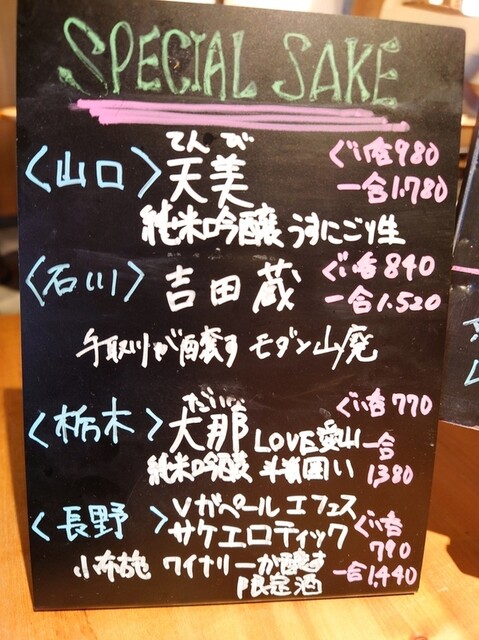 SPECIAL SAKE
てんび
<山口> 天美 ぐい呑980
一合1.780
純米吟醸 うすにごり生
<石川> 吉田蔵 ぐい呑840
一合1.520
手取川が醸す モダン山廃
だいな
<栃木> 大那 ぐい呑770
LOVE愛山 一合
純米吟醸 斗瓶囲い 1380
<長野> Vガペール エフェス
サケエロティック ぐい呑
790
小布施 ワイナリーが醸す 一合1,440
限定酒